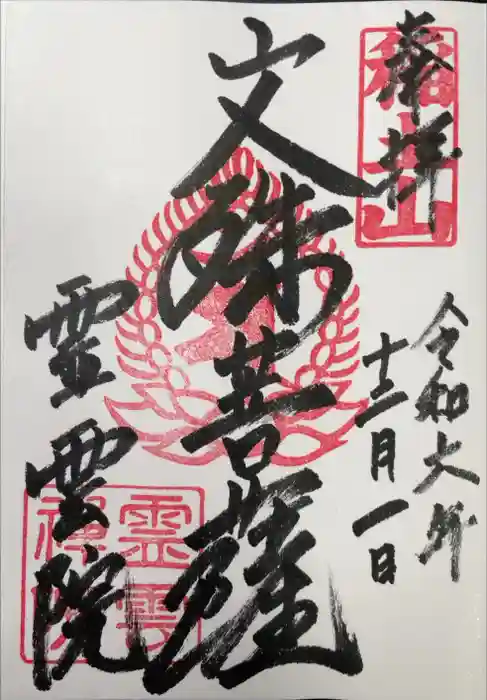 奉拝
令和六年
十二月一日
文殊菩薩
霊雲院
霊雲
禅院